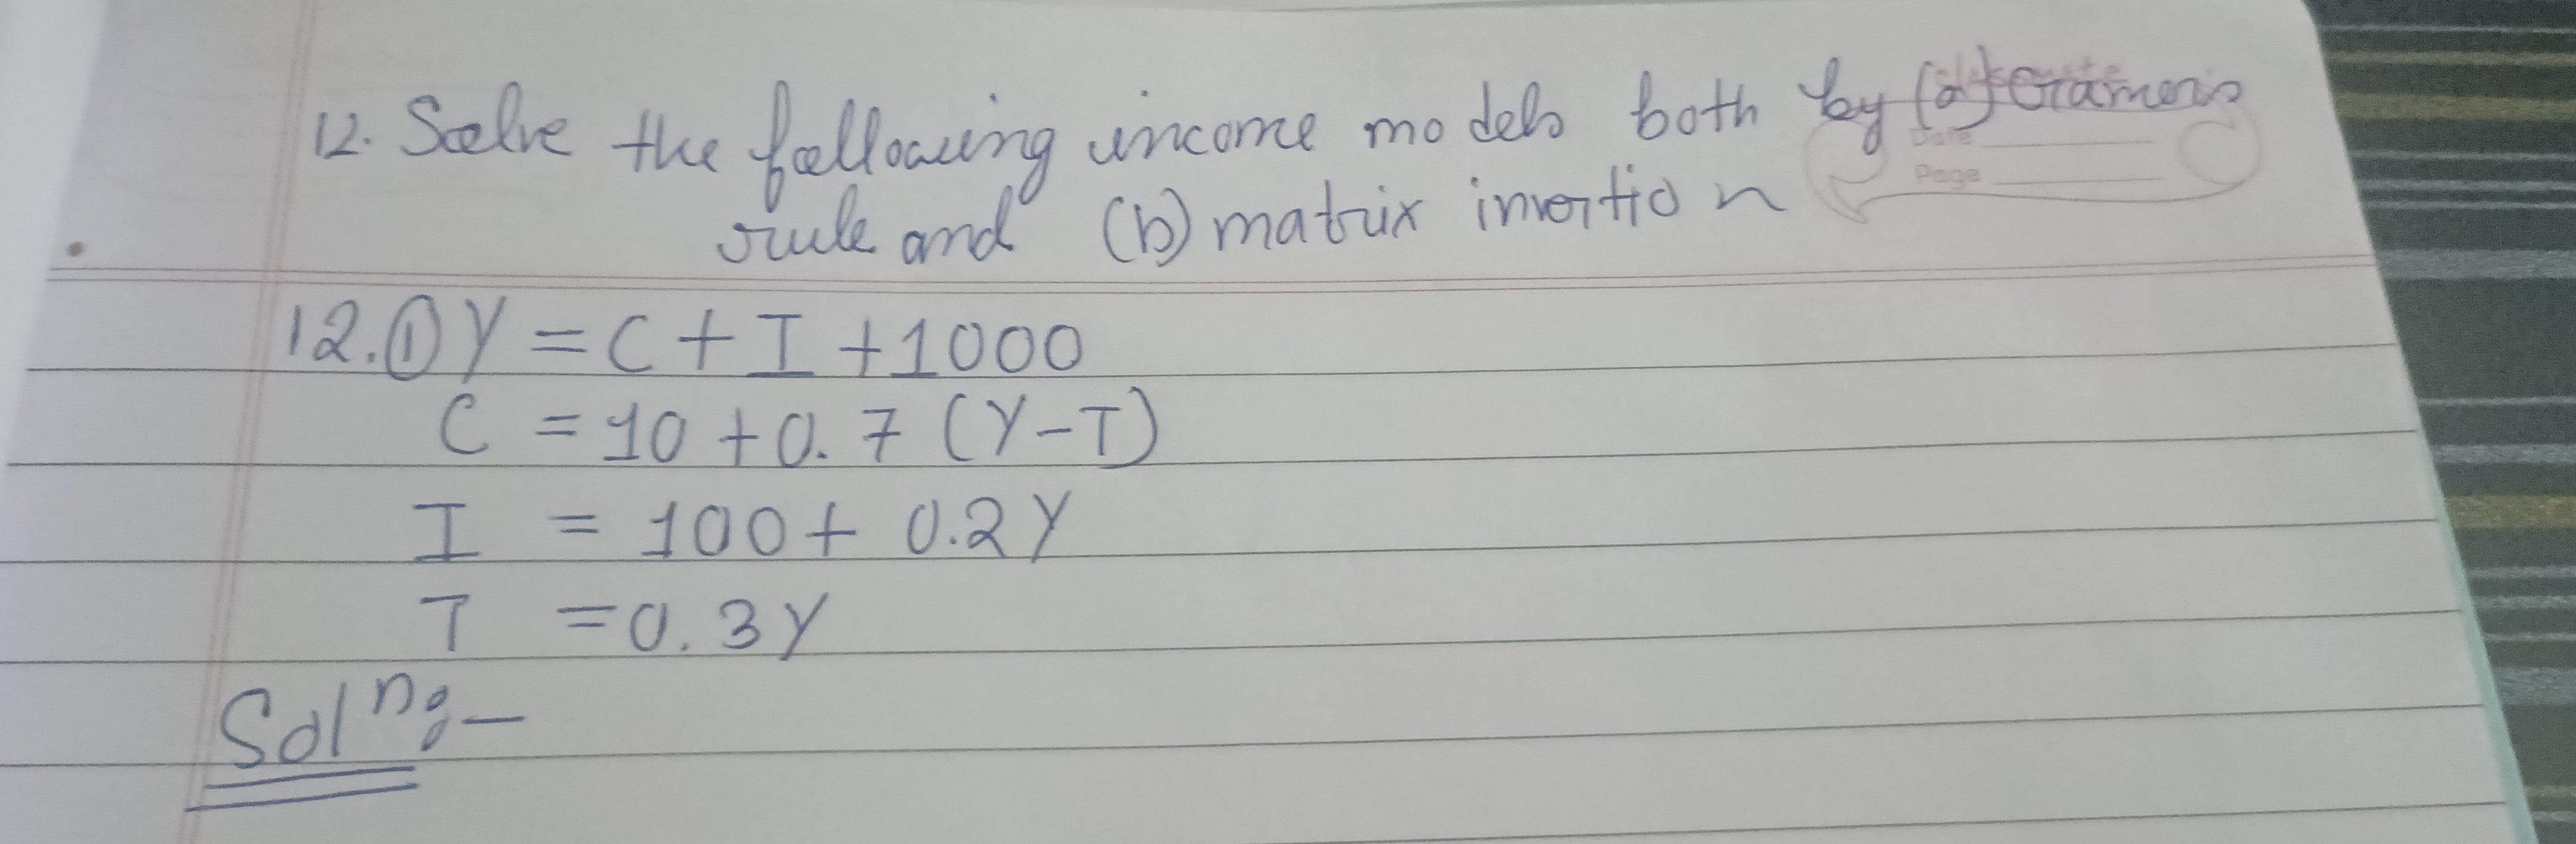 12. Solve the following income models both by (a) Cramer's
Date
Page
rule and (b) matrix invertion
12. ① Y = C + I + 1000
C = 10 + 0.7 (Y - T)
I = 100 + 0.2Y
T = 0.3Y
Solⁿ:-